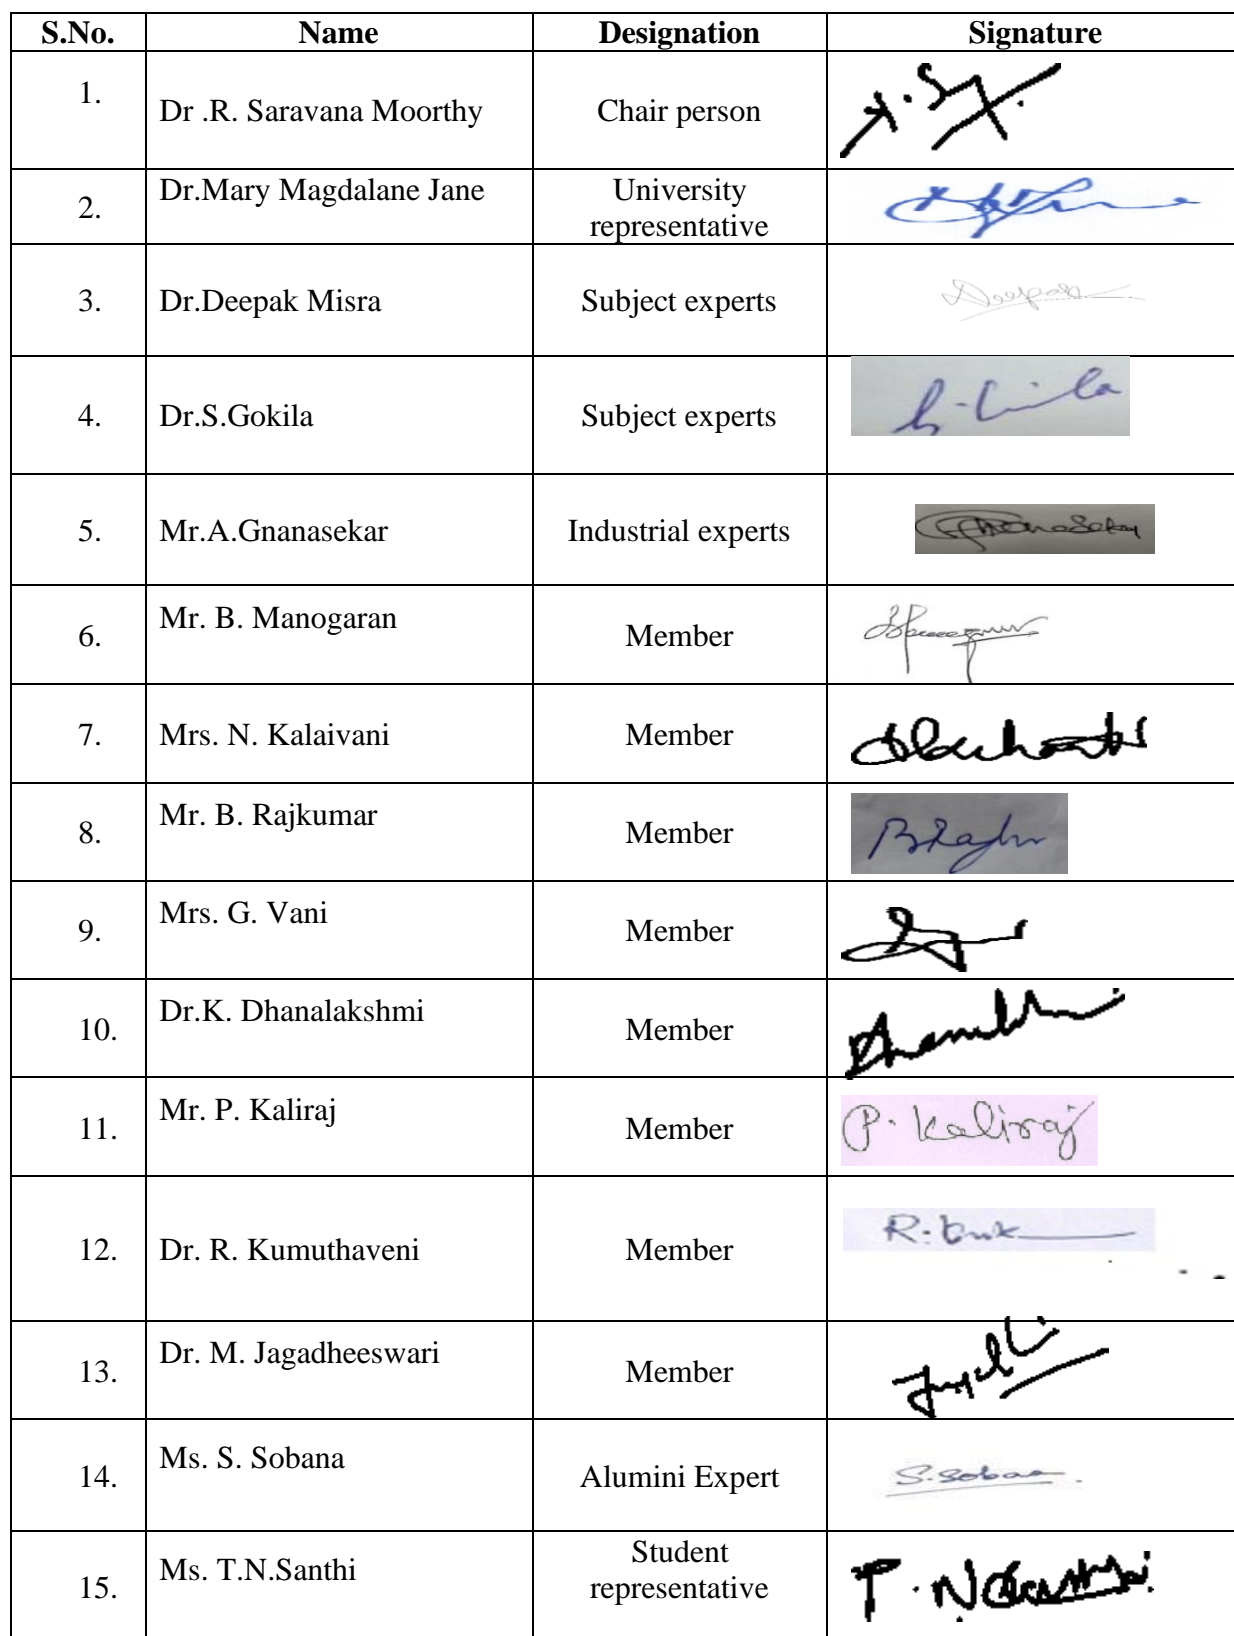 S.No. Name Designation Signature
1. Dr .R. Saravana Moorthy Chair person
2. Dr.Mary Magdalane Jane University
representative
3. Dr.Deepak Misra Subject experts Deepak
4. Dr.S.Gokila Subject experts
5. Mr.A.Gnanasekar Industrial experts
6. Mr. B. Manogaran Member
7. Mrs. N. Kalaivani Member
8. Mr. B. Rajkumar Member
9. Mrs. G. Vani Member
10. Dr.K. Dhanalakshmi Member
11. Mr. P. Kaliraj Member P. Kaliraj
12. Dr. R. Kumuthaveni Member
13. Dr. M. Jagadheeswari Member
14. Ms. S. Sobana Alumini Expert
15. Ms. T.N.Santhi Student
representative